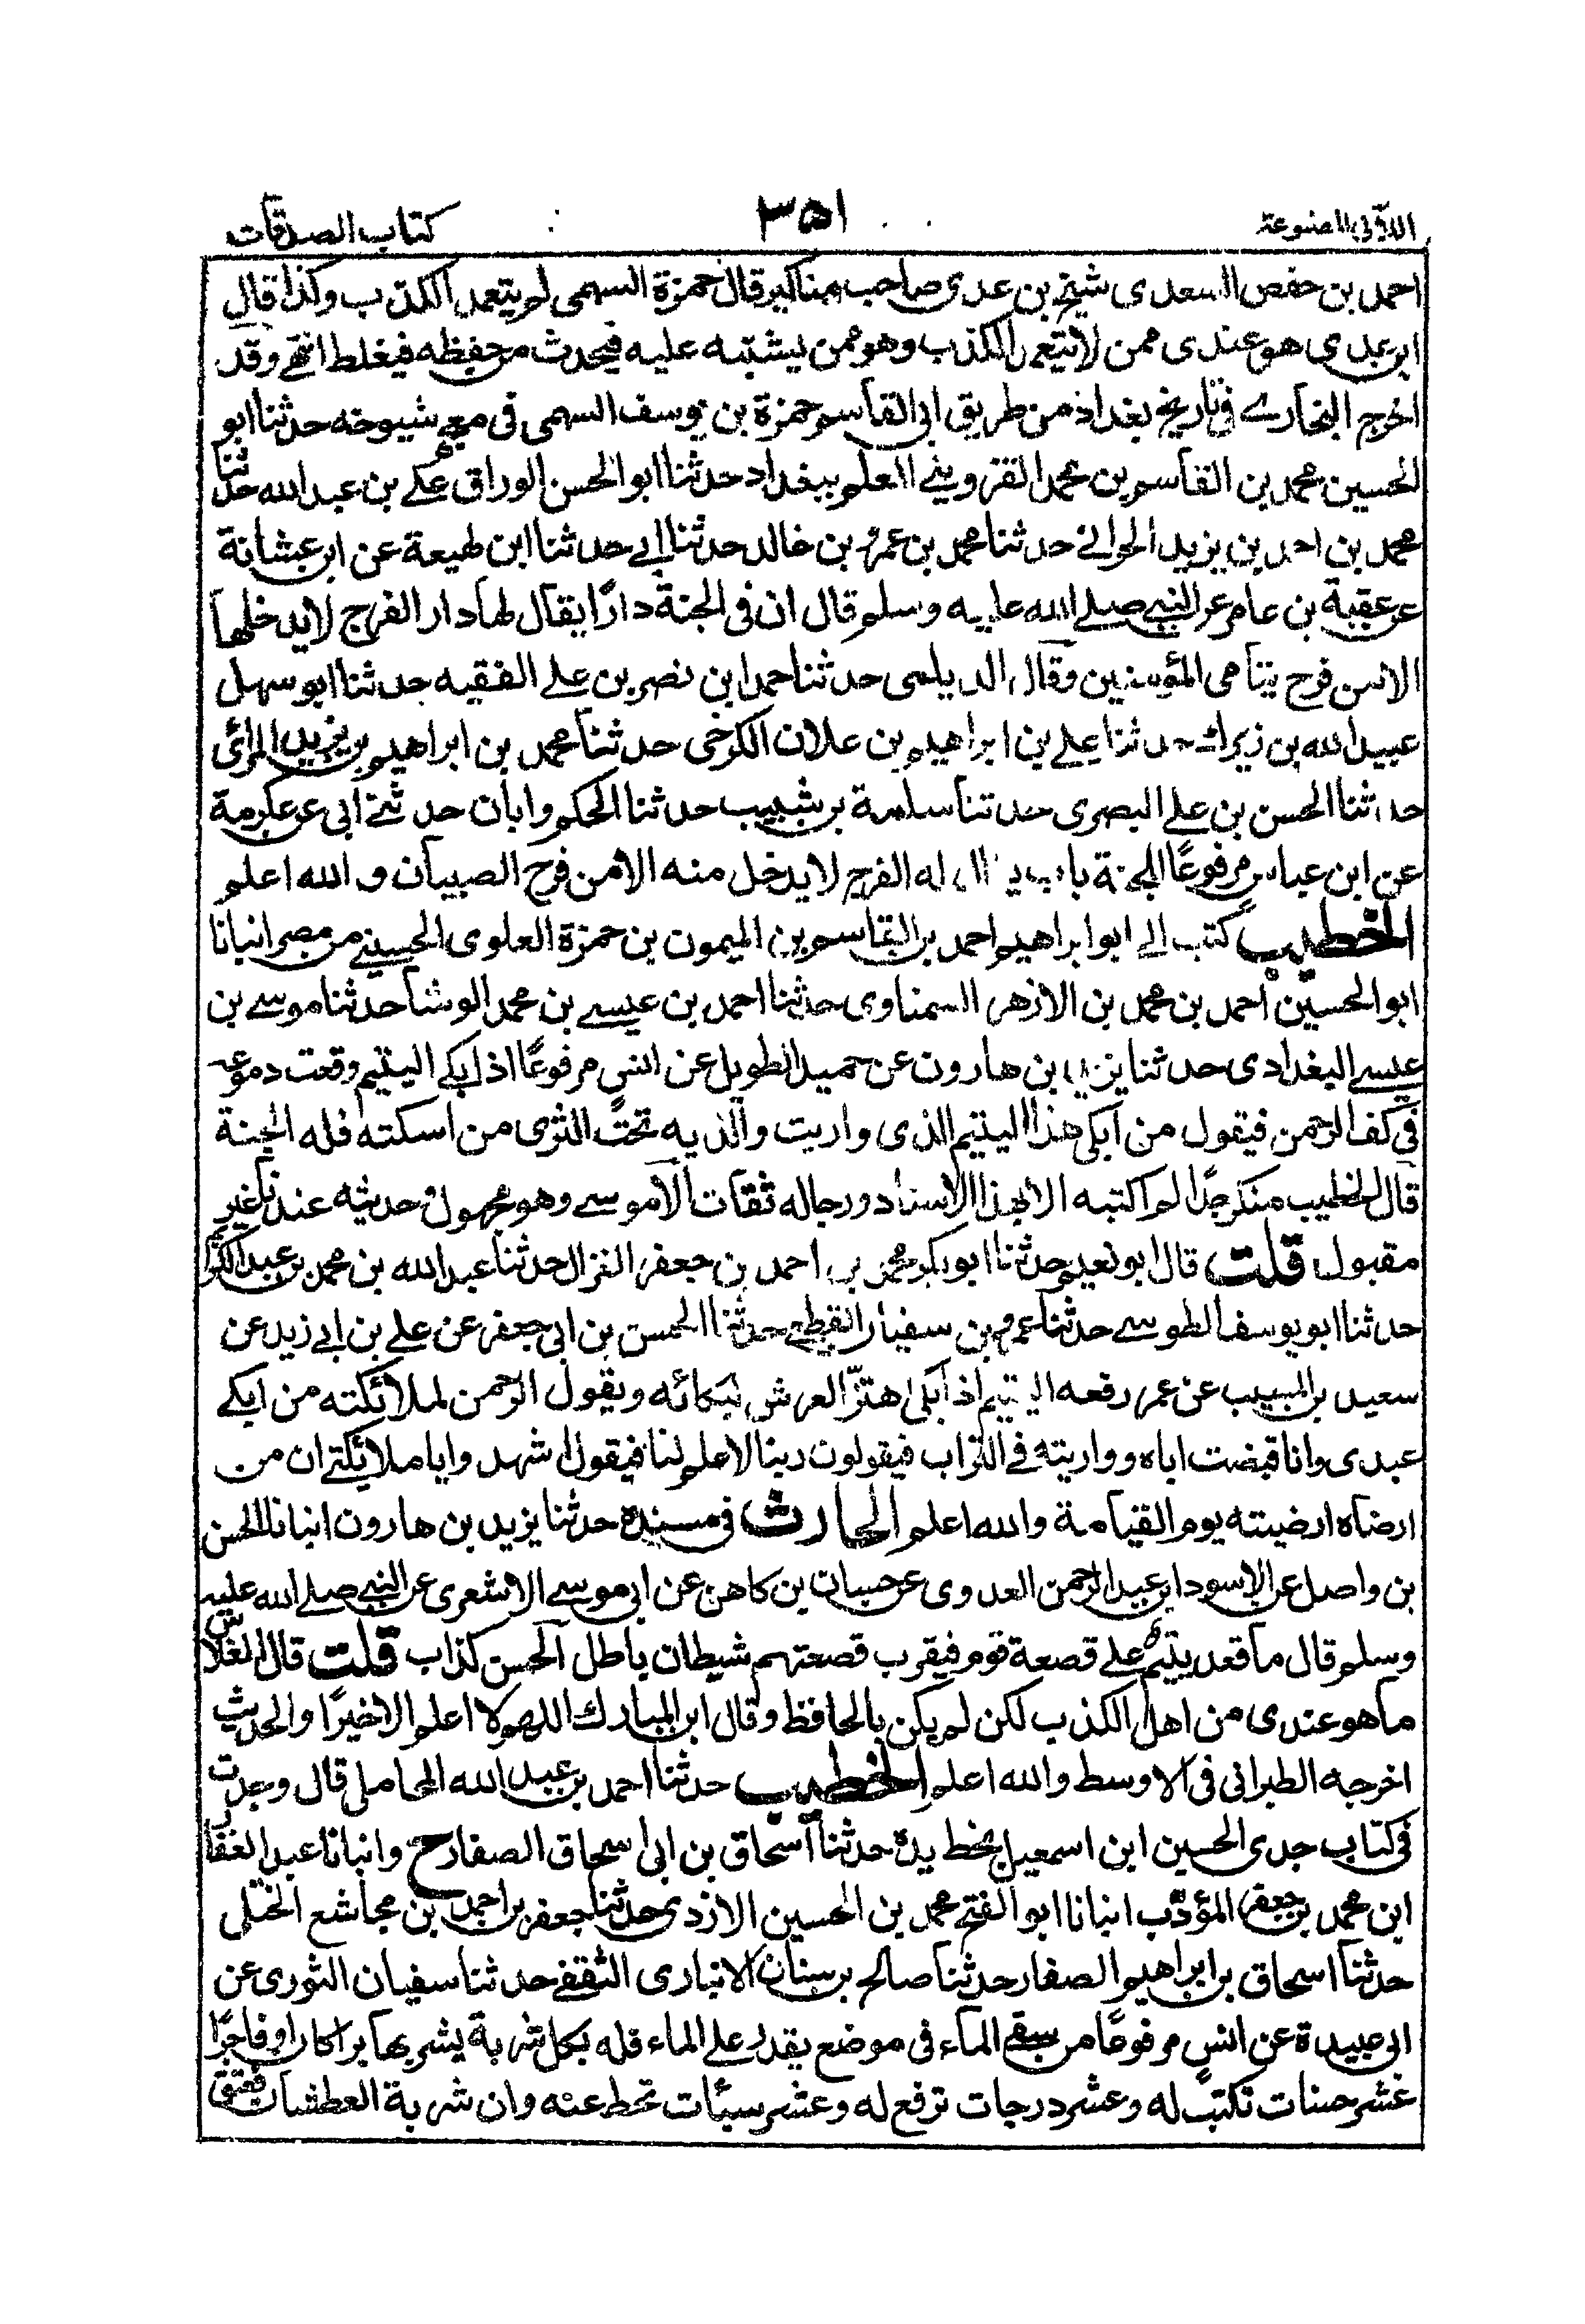 اللآلي المصنوعة ٣٥١ كتاب الصدقات
احمد بن حفص السعدى شيخ بن عدى صاحب مناكير قال حمزة السهمى لم يتعمد الكذب وكذا قال
ابن عدى هو عندى ممن لا يتعمد الكذب وهو ممن يشتبه عليه فيحدث من حفظه فيغلط انتهى وقد
اخرج البخارى فى تاريخ بغداد من طريق ابى القاسم حمزة بن يوسف السهمى فى معجم شيوخه حدثنا ابو
الحسين محمد بن القاسم بن محمد القزوينى المعلم ببغداد حدثنا ابو الحسن الوراق على بن عبد الله حدثنا
محمد بن احمد بن يزيد الحرانى حدثنا محمد بن عمرو بن خالد حدثنا ابى حدثنا ابن لهيعة عن ابن عشانة
عن عقبة بن عامر عن النبى صلى الله عليه وسلم قال ان فى الجنة دارًا يقال لها دار الفرح لا يدخلها
الا من فرح يتامى المؤمنين وقال الديلمى حدثنا حمد ابن نصر بن على الفقيه حدثنا ابو سهل
عبيد الله بن زيرك حدثنا على بن ابراهيم بن علان الكرخى حدثنا محمد بن ابراهيم بن يزيد المرائ
حدثنا الحسن بن على البصرى حدثنا سلمة بن شبيب حدثنا الحكم وابان حدثنى ابى عن عكرمة
عن ابن عباس مرفوعًا للجنة باب يقال له الفرح لا يدخل منه الا من فرح الصبيان والله اعلم
الخطيب كتب الى ابو ابراهيم احمد بن القاسم بن الميمون بن حمزة العلوى الحسينى من مصر انبانا
ابو الحسين احمد بن محمد بن الازهر السمناوى حدثنا احمد بن عيسى بن محمد الوشا حدثنا موسى بن
عيسى البغدادى حدثنا يزيد بن هارون عن حميد الطويل عن انس مرفوعًا اذا بكى اليتيم وقعت دموعه
فى كف الرحمن فيقول من ابكى هذا اليتيم الذى واريت والذيه تحت الثرى من اسكته فله الجنة
قال الخطيب منكر جدًا لم اكتبه الا بهذا الاسناد ورجاله ثقات الا موسى وهو مجهول وحديثه عندنا غير
مقبول قلت قال ابو نعيم حدثنا ابو بكر محمد بن احمد بن جعفر الغزال حدثنا عبد الله بن محمد بن عبد الكريم
حدثنا ابو يوسف الطوسى حدثنا عمرو بن سفيان القطيعى حدثنا الحسن بن ابى جعفر عن على بن ابى زيد عن
سعيد بن المسيب عن عمر رفعه اليتيم اذا بكى اهتز العرش لبكائه ويقول الرحمن لملائكته من ابكى
عبدى وانا قبضت اباه وواريته فى التراب فيقولون ربنا لا علم لنا فيقول اشهد وايا ملائكتى ان من
ارضاه ارضيته يوم القيامة والله اعلم الحارث فى مسنده حدثنا يزيد بن هارون انبانا الحسن
بن واصل عن الاسود ابن عبد الرحمن العدوى عن حسان بن كاهن عن ابى موسى الاشعرى عن النبى صلى الله عليه
وسلم قال ما قعد يتيم على قصعة قوم فيقرب قصعتهم شيطان باطل الحسن كذاب قلت قال الفلاس
ما هو عندى من اهل الكذب لكن لم يكن بالحافظ وقال ابن المبارك اللهم لا اعلم الا خيرًا والحديث
اخرجه الطبرانى فى الاوسط والله اعلم الخطيب حدثنا احمد بن عبد الله المحاملى قال وجدت
فى كتاب جدى الحسين ابن اسمعيل بخط يده حدثنا اسحاق بن ابى اسحاق الصفار ح وانبانا عبد الغفار
ابن محمد بن جعفر المؤدب انبانا ابو الفتح محمد بن الحسين الازدى حدثنا جعفر بن احمد بن مجاشع الختلى
حدثنا اسحاق بن ابراهيم الصفار حدثنا صالح بن سنان الانبارى الثقفى حدثنا سفيان الثورى عن
ابى عبيدة عن انس مرفوعًا من سقى الماء فى موضع يقدر على الماء فله بكل شربة يشربها بر اكان او فاجرًا
عشر حسنات تكتب له وعشر درجات ترفع له وعشر سيئات تحط عنه وان شربة العطشان كعتق